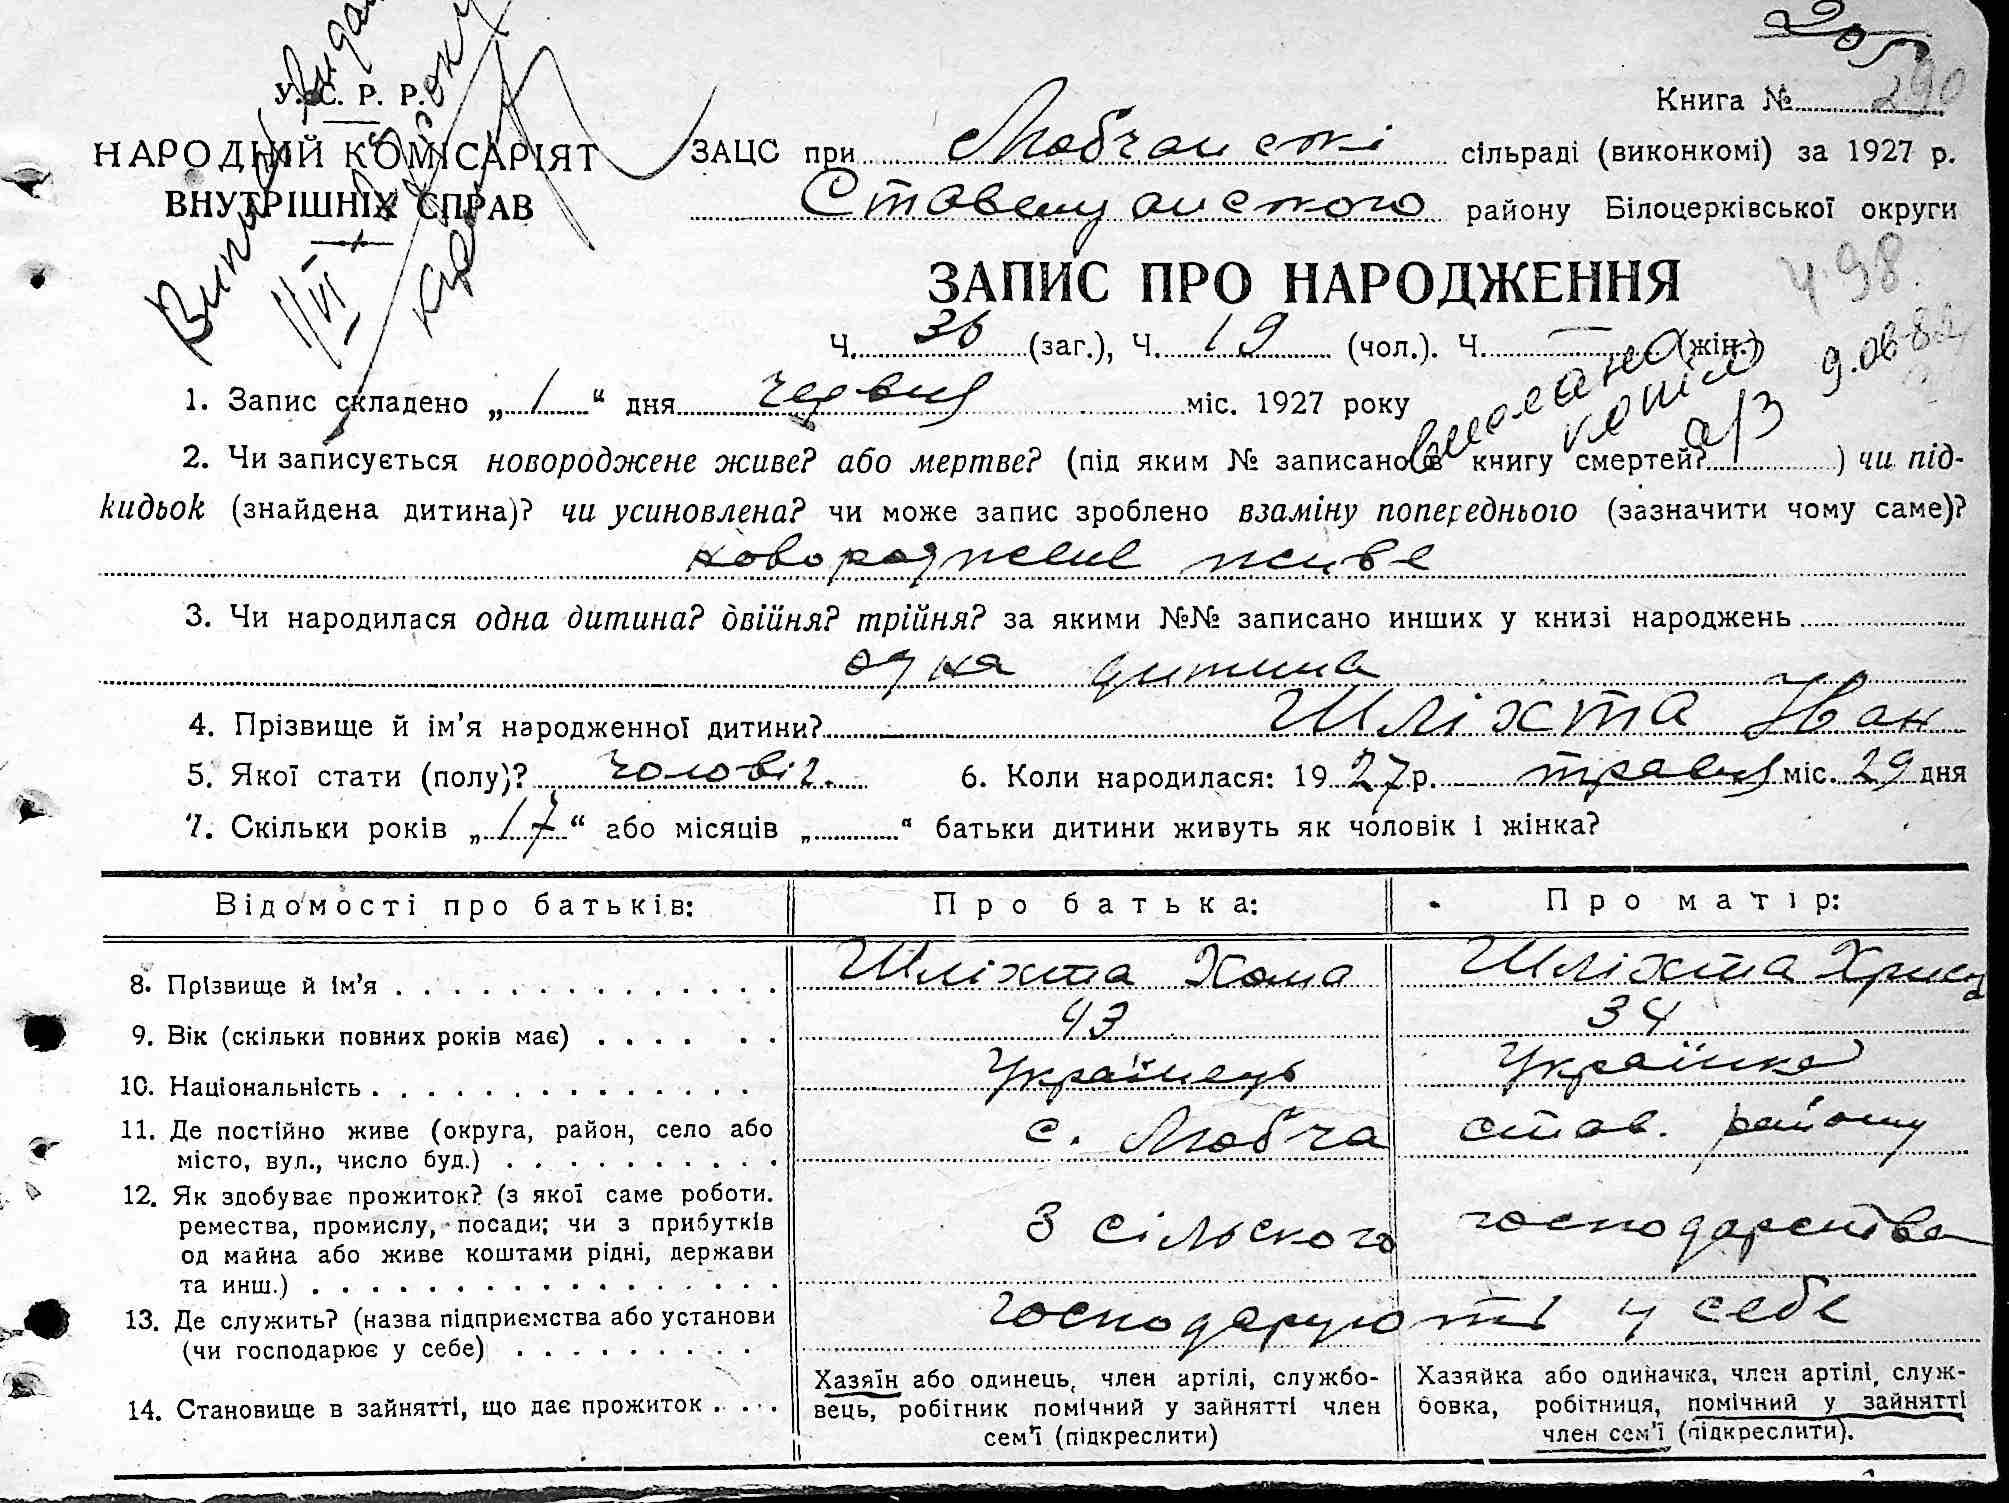 205
290
У. С. Р. Р.
НАРОДНІЙ КОМІСАРІЯТ
ВНУТРІШНІХ СПРАВ
Книга №
ЗАЦС при Любчанскі сільраді (виконкомі) за 1927 р.
Ставещанского району Білоцерківської округи
ЗАПИС ПРО НАРОДЖЕННЯ
Ч. 36 (заг.), Ч. 19 (чол.). Ч. — (жін.)
1. Запис складено „ 1 “ дня червня міс. 1927 року
2. Чи записується новороджене живе? або мертве? (під яким № записано в книгу смертей? ) чи під-
кидьок (знайдена дитина)? чи усиновлена? чи може запис зроблено взаміну попереднього (зазначити чому саме)?
новороджене живе
3. Чи народилася одна дитина? двійня? трійня? за якими №№ записано инших у книзі народжень
одна дитина
4. Прізвище й ім’я народженної дитини? Шліхта Іван
5. Якої стати (полу)? чоловіч. 6. Коли народилася: 1927 р. травня міс. 29 дня
7. Скільки років „ 17 “ або місяців „ “ батьки дитини живуть як чоловік і жінка?
Відомості про батьків: Про батька: Про матір:
8. Прізвище й ім’я Шліхта Хома Шліхта Христя
9. Вік (скільки повних років має) 43 34
10. Національність Українець Українка
11. Де постійно живе (округа, район, село або
місто, вул., число буд.) с. Любча став. району
12. Як здобуває прожиток? (з якої саме роботи.
ремества, промислу, посади; чи з прибутків
од майна або живе коштами рідні, держави
та инш.) З сільского господарства
13. Де служить? (назва підприємства або установи
(чи господарює у себе) господарують у себе
14. Становище в зайнятті, що дає прожиток
Хазяїн або одинець, член артілі, службо-
вець, робітник помічний у зайнятті член
сем’ї (підкреслити)
Хазяйка або одиначка, член артілі, служ-
бовка, робітниця, помічний у зайнятті
член сем’ї (підкреслити).